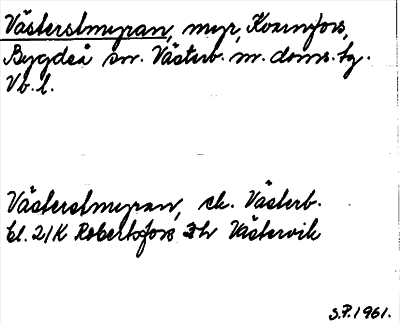 Västerstmyran, myr, Kvarnfors,
Bygdeå sn. Västerb. m. doms. tg.
Vb. l.
Västerstmyran, ek. Västerb.
bl. 21K Robertsfors Västervik
S.P. 1961.